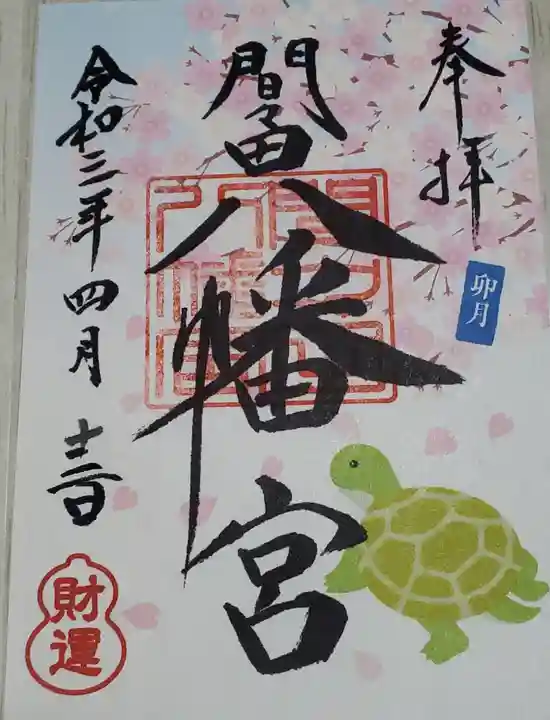 奉拝
卯月
間々田八幡宮
令和三年四月十三日
財運